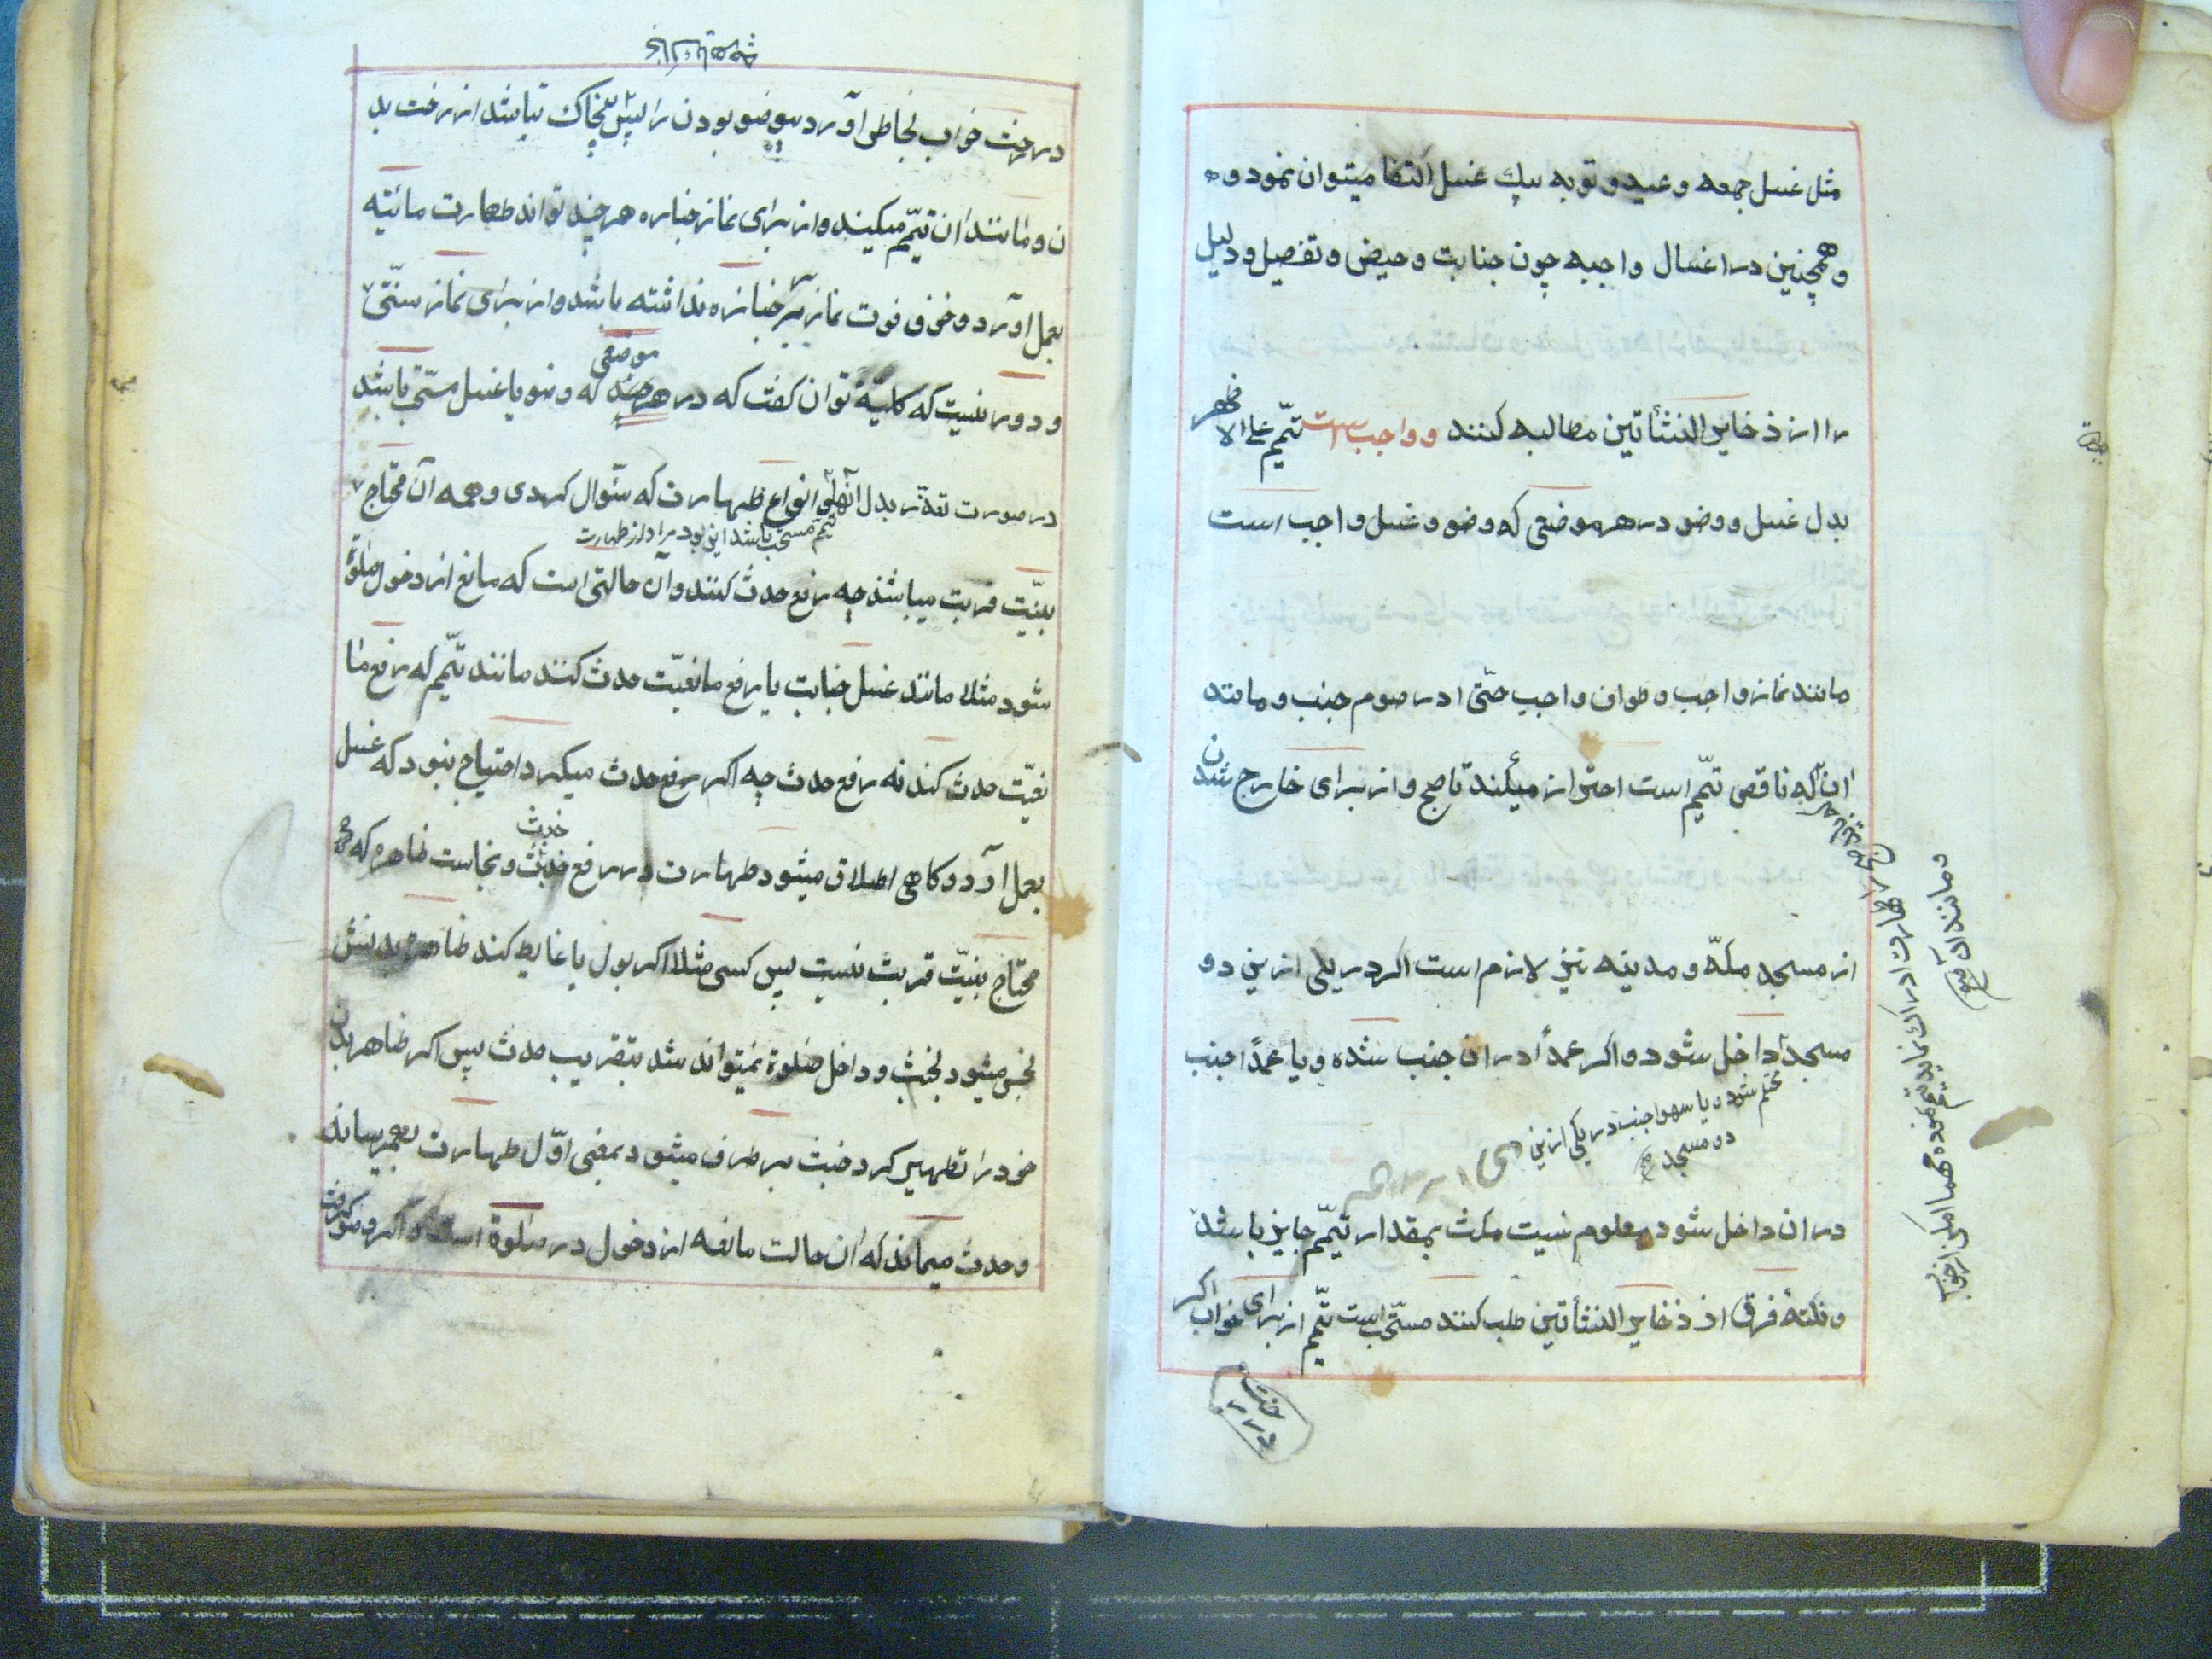 مثل غسل جمعه و عید و توبه بیک غسل اکتفا میتوان نمود و
و همچنین در اغسال واجبه چون جنابت و حیض و تفصیل و دلیل
را از ذخایر النشأتین مطالبه کنند و واجب است تیمّم علی الاظهر
بدل غسل و وضو در هر موضعی که وضو و غسل واجب است
مانند نماز واجب و طواف واجب حتّی در صوم جنب و مانند
ان که ناقص تیمّم است احتراز میکند تا صبح و از برای خارج شدن
از مسجد مکّه و مدینه نیز لازم است اکر در یکی ازین دو
مسجد داخل شود و اکر عمداً در ان جنب شده و یا عمداً جنب
محتلم شود و یا سهوا جنب در یکی ازین
دو مسجد
در ان داخل شود معلوم نیست مکث بمقدار تیمّم جایز باشد
و نکتهٔ فرق از ذخایر النشأتین طلب کنند مستحبّ است تیمّم از برای خواب اکر
و مانند آن
در رخت خواب بخاطر آورد بیوضو بودن را پیش بخاک نباشد از رخت بد
ن و مانند ان تیمّم میکنند و از برای نماز جنازه هر چند تواند طهارت مائیّه
بعمل آورد و خوف فوت نماز بر جنازه نداشته باشد و از برای نماز سنّتی
و دور نیست که کلیّة توان کفت که در هر موضعی که وضو یا غسل مستحبّ باشد
تیمّم مستحبّ باشد این بود مراد از طهارت
در صورت تعذّر بدل انها انواع طهارت که سئوال کردی و همه آن محتاج
بنیّت قربت میباشد چه رفع حدث کنند و آن حالتی است که مانع از دخول صلوة
شود مثلا مانند غسل جنابت یا رفع مانعیّت حدث کنند مانند تیمّم که رفع ما
نعیّت حدث کند نه رفع حدث چه اکر رفع حدث میکرد احتیاج نبود که غسل
بعمل آرد و کاهی اطلاق میشود طهارت در رفع خبث و نجاست ظاهره که
محتاج بنیّت قربت نیست پس کسی مثلا اکر بول یا غایط کند ظاهر بدنش
نجس میشود بخبث و داخل صلوة نمیتواند شد بتقریب حدث پس اکر ظاهر بدن
خود را تطهیر کرد خبث بر طرف میشود بمعنی اوّل طهارت بهم رسانه
و حدث میماند که ان حالت مانعه از دخول در صلوة است و اکر وضو کرفت